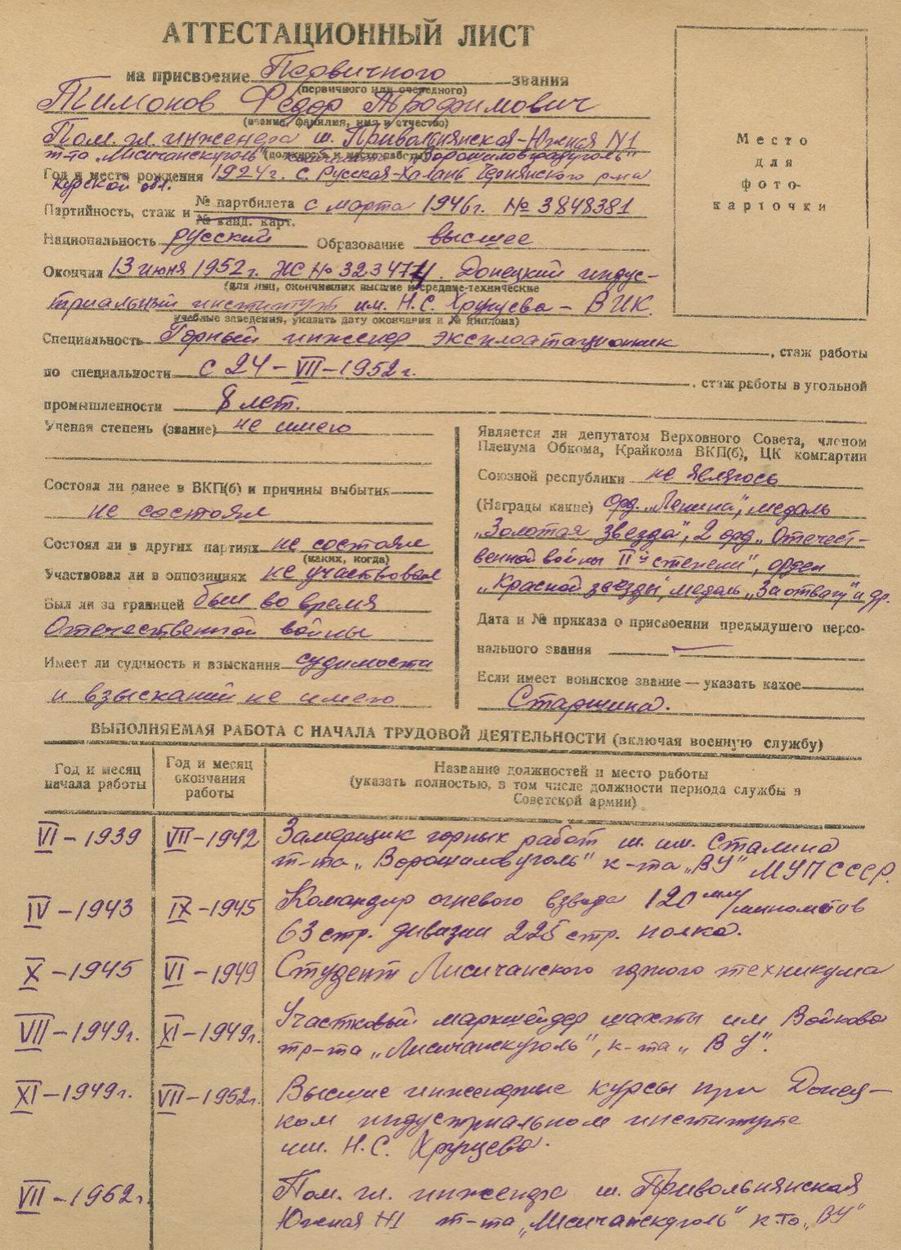 АТТЕСТАЦИОННЫЙ ЛИСТ
на присвоение Первичного звания
(первичного или очередного)
Тимонов Федор Трофимович
(звание, фамилия, имя и отчество)
Пом. гл. инженера ш. Привольнянская-Южная №1
т-та „Лисичанскуголь" (должность и место работы) „Ворошиловградуголь"
Год и место рождения 1924 г. с. Русская-Халань Чернянского р-на
Курской обл.
Партийность, стаж и № партбилета с марта 1946г. № 3848381
№ канд. карт.
Национальность русский Образование высшее
Окончил 13 июня 1952 г. ЖС № 323474. Донецкий индус-
(для лиц, окончивших высшие и средне-технические
триальный институт им. Н.С. Хрущева – ВИК
учебные заведения, указать дату окончания и № диплома)
Специальность Горный инженер эксплоатационник, стаж работы
по специальности с 24-VII-1952г., стаж работы в угольной
промышленности 8 лет.
Ученая степень (звание) не имею
Состоял ли ранее в ВКП(б) и причины выбытия
не состоял
Состоял ли в других партиях не состоял
(каких, когда)
Участвовал ли в оппозициях не участвовал
Был ли за границей был во время
Отечественной войны
Имеет ли судимость и взыскания судимости
и взысканий не имею
Является ли депутатом Верховного Совета, членом
Пленума Обкома, Крайкома ВКП(б), ЦК компартии
Союзной республики не являюсь
(Награды какие) орд. „Ленина", медаль
„Золотая звезда", 2 орд „Отечест-
венной войны II й степени", орден
„Красной звезды", медаль „За отвагу" и др.
Дата и № приказа о присвоении предыдущего персо-
нального звания
Если имеет воинское звание — указать какое
Старшина.
Место
для
фото-
карточки
ВЫПОЛНЯЕМАЯ РАБОТА С НАЧАЛА ТРУДОВОЙ ДЕЯТЕЛЬНОСТИ (включая военную службу)
Год и месяц
начала работы
Год и месяц
окончания
работы
Название должностей и место работы
(указать полностью, в том числе должности периода службы в
Советской армии)
VI-1939 VII-1942 Замерщик горных работ ш. им. Сталина
т-та „Ворошиловуголь" к-та „ВУ" МУП СССР.
IV-1943 IX-1945 Командир огневого взвода 120 мм/минометов
63 стр. дивизии 225 стр. полка.
X-1945 VI-1949 Студент Лисичанского горного техникума
VII-1949г. XI-1949г. Участковый маркшейдер шахты им Войкова
тр-та „Лисичанскуголь", к-та „ВУ".
XI-1949г. VII-1952г. Высшие инженерные курсы при Донец-
ком индустриальном институте
им. Н.С. Хрущева.
VII-1952г. Пом. гл. инженера ш. Привольнянская
Южная №1 т-та „Лисичанскуголь" к-та „ВУ"